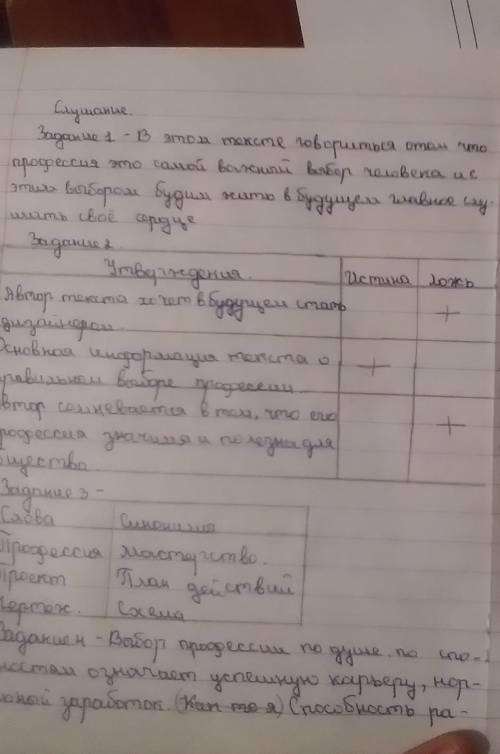 Слушание.
Задание 1 - В этом тексте говориться о том что
профессия это самой важный выбор человека и с
этим выбором будим жить в будущем главное слу-
шать своё сердце
Задание 2.
Утверждения. Истина ложь
Автор текста хочет в будущем стать
дизайнером. +
Основная информация текста о +
правильном выборе профессии
Автор сомневается в том, что его
профессия значимя и полезна для +
общества
Задание 3 -
Слова Синонимы
Профессия Мастерство.
Проект План действий
Чертеж. Схема
Задание 4 - Выбор профессии по душе. по спо-
ностям означает успешную карьеру, нор-
льный заработок. (Как то я) Способность ра-